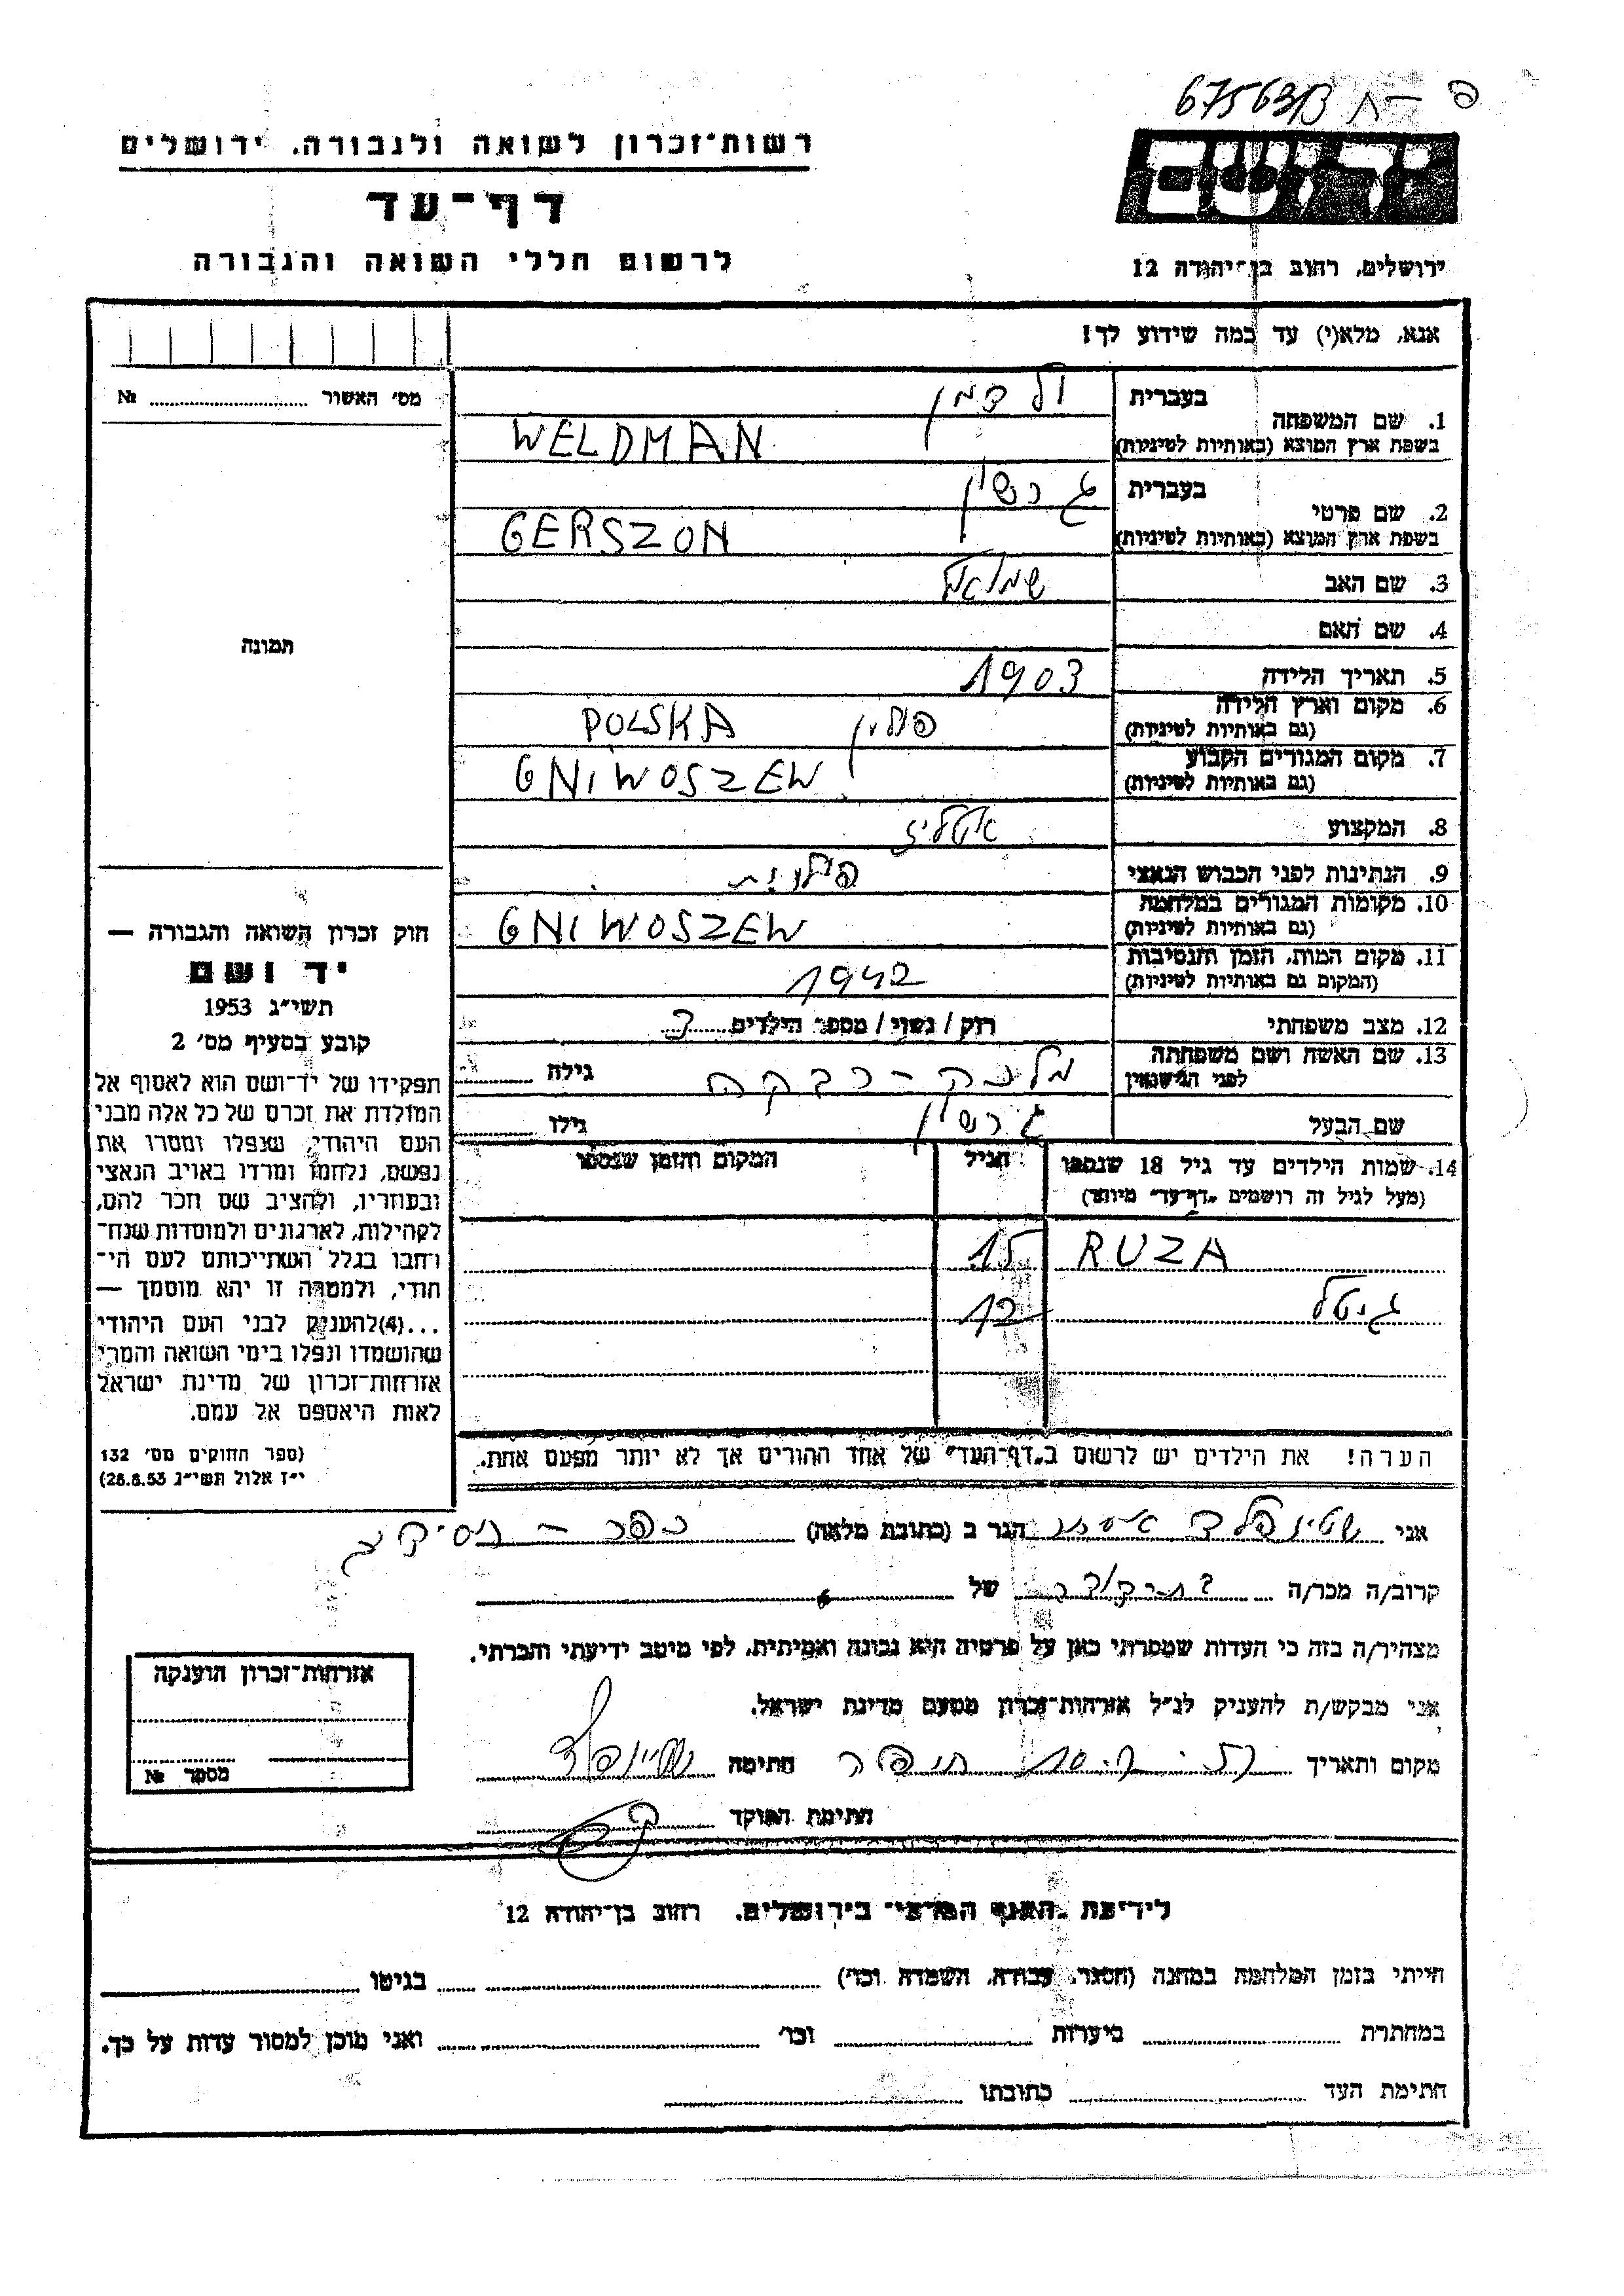 67563B
רשות־זכרון לשואה ולגבורה. ירושלים
יד ושם
דף־עד
לרשום חללי השואה והגבורה
ירושלים, רחוב בן־יהודה 12
אנא, מלא(י) עד כמה שידוע לך!
מס׳ האשור № 
בעברית ולדמן
1. שם המשפחה
בשפת ארץ המוצא (באותיות לטיניות) WELDMAN
בעברית גרשון
2. שם פרטי
בשפת ארץ המוצא (באותיות לטיניות) GERSZON
3. שם האב שמואל
4. שם האם
תמונה
5. תאריך הלידה 1903
6. מקום וארץ הלידה
(גם באותיות לטיניות) פולין POLSKA
7. מקום המגורים הקבוע
(גם באותיות לטיניות) GNIWOSZEW
8. המקצוע
9. הנתינות לפני הכבוש הנאצי
10. מקומות המגורים במלחמה
(גם באותיות לטיניות) GNIWOSZEW
11. מקום המות, הזמן והנסיבות
(המקום גם באותיות לטיניות) 1942
12. מצב משפחתי רוק / נשוי / מספר הילדים
13. שם האשה ושם משפחתה
לפני הנישואין רבקה גילה
שם הבעל גרשון גילו
14. שמות הילדים עד גיל 18 שנספו הגיל המקום והזמן שנספו
(מעל לגיל זה רושמים „דף־עד״ מיוחד)
RUZA 15
גיטל 12
הערה! את הילדים יש לרשום ב„דף־העד״ של אחד ההורים אך לא יותר מפעם אחת.
חוק זכרון השואה והגבורה —
יד ושם
תשי״ג 1953
קובע בסעיף מס׳ 2
תפקידו של יד־ושם הוא לאסוף אל
המולדת את זכרם של כל אלה מבני
העם היהודי, שנפלו ומסרו את
נפשם, נלחמו ומרדו באויב הנאצי
ובעוזריו, ולהציב שם וזכר להם,
לקהילות, לארגונים ולמוסדות שנח־
רחבו בגלל השתייכותם לעם הי־
הודי, ולמטרה זו יהא מוסמך —
...(4)להעניק לבני העם היהודי
שהושמדו ונפלו בימי השואה והמרי
אזרחות־זכרון של מדינת ישראל
לאות היאספם אל עמם.
(ספר החוקים מס׳ 132
י״ז אלול תשי״ג 28.8.53)
אני שטיינפלד הגר ב (כתובת מלאה) כפר - חסידים
קרוב/ה מכר/ה של
מצהיר/ה בזה כי העדות שמסרתי כאן על פרטיה היא נכונה ואמיתית, לפי מיטב ידיעתי והכרתי.
אני מבקש/ת להעניק לנ״ל אזרחות־זכרון מטעם מדינת ישראל.
מקום ותאריך חתימה
חתימת הפוקד
אזרחות־זכרון הוענקה
מספר №
לידיעת „האגף המדעי״ בירושלים. רחוב בן־יהודה 12
הייתי בזמן המלחמה במחנה (הסגר, עבודה, השמדה וכו׳) בגיטו
במחתרת ביערות וכו׳ ואני מוכן למסור עדות על כך.
חתימת העד כתובתו